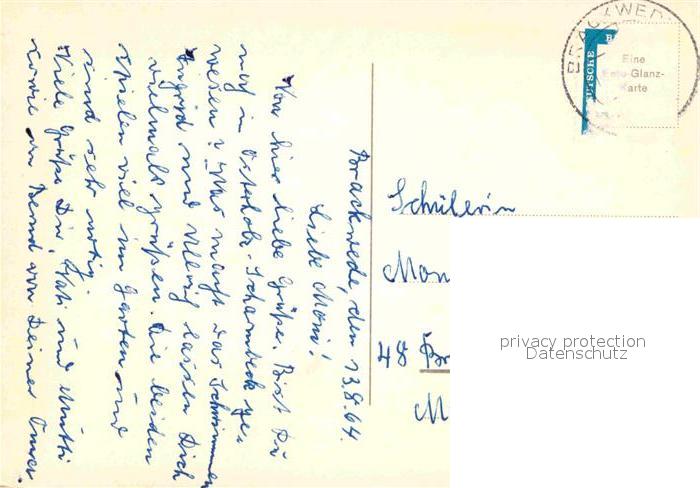 Brackwede, den 13.8.64.
Liebe Moni!
Von hier liebe Grüße. Bist Du
mal in Osterholz-Scharmbeck ge-
wesen? Was macht das Schwimmen
Ingrid und Ulrich lassen Dich
vielmals grüßen. Die beiden
spielen viel im Garten und
sind sehr artig.
Viele Grüße Dir, Vati und Mutti
sowie an Bernd von Deiner Omi.
BRACKWEDE
DEUTSCHE B
Eine
Foto-Glanz-
Karte
Schülerin
Mon
48 Br
M
privacy protection
Datenschutz